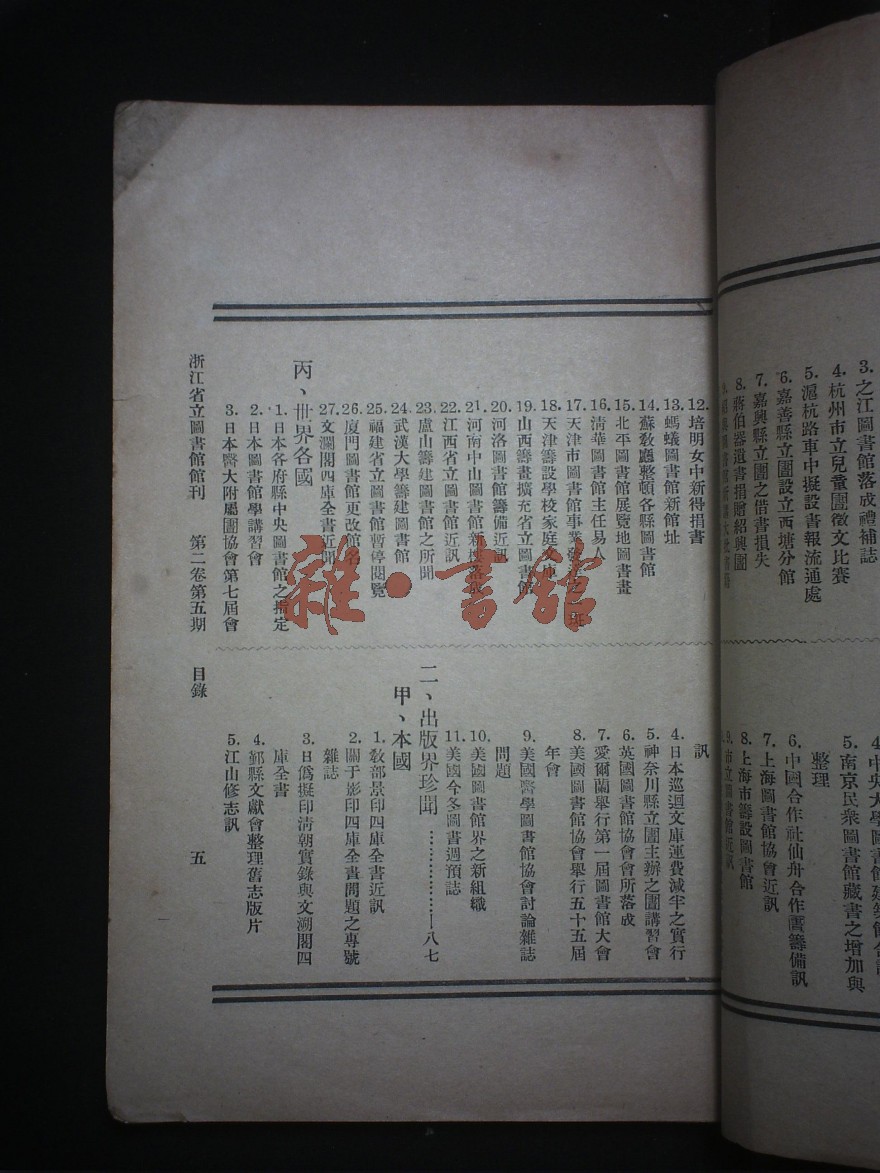 3. 之江圖書館落成禮補誌
4. 杭州市立兒童圖徵文比賽
5. 滬杭路車中擬設書報流通處
6. 嘉善縣立圖設立西塘分館
7. 嘉興縣立圖之借書損失
8. 蔣伯器遺書捐贈紹興圖
5. 南京民衆圖書館藏書之增加與
整理
6. 中國合作社仙舟合作圕籌備訊
7. 上海圖書館協會近訊
8. 上海市籌設圖書館
9. 市立圖書館近訊
12. 培明女中新得捐書
13. 螞蟻圖書館新館址
14. 蘇敎廳整頓各縣圖書館
15. 北平圖書館展覽地圖書畫
16. 淸華圖書館主任易人
17. 天津市圖書館事業
18. 天津籌設學校家庭文庫
19. 山西籌畫擴充省立圖書館
20. 河洛圖書館籌備近訊
21. 河南中山圖書館新樓落成
22. 江西省立圖書館近訊
23. 廬山籌建圖書館之所聞
24. 武漢大學籌建圖書館
25. 福建省立圖書館暫停閱覽
26. 廈門圖書館更改館名
27. 文瀾閣四庫全書近聞
丙、世界各國
1. 日本各府縣中央圖書館之指定
2. 日本圖書館學講習會
3. 日本醫大附屬圖協會第七屆會
訊
4. 日本巡迴文庫運費減半之實行
5. 神奈川縣立圖主辦之圖講習會
6. 英國圖書館協會會所落成
7. 愛爾蘭舉行第一屆圖書館大會
8. 美國圖書館協會舉行五十五屆
年會
9. 美國醫學圖書館協會討論雜誌
問題
10. 美國圖書館界之新組織
11. 美國今冬圖書週預誌
二、出版界珍聞………………八七
甲、本國
1. 敎部景印四庫全書近訊
2. 關于影印四庫全書問題之專號
雜誌
3. 日僞擬印淸朝實錄與文溯閣四
庫全書
4. 鄞縣文獻會整理舊志版片
5. 江山修志訊
浙江省立圖書館館刊 第二卷第五期 目錄 五
雜·書館